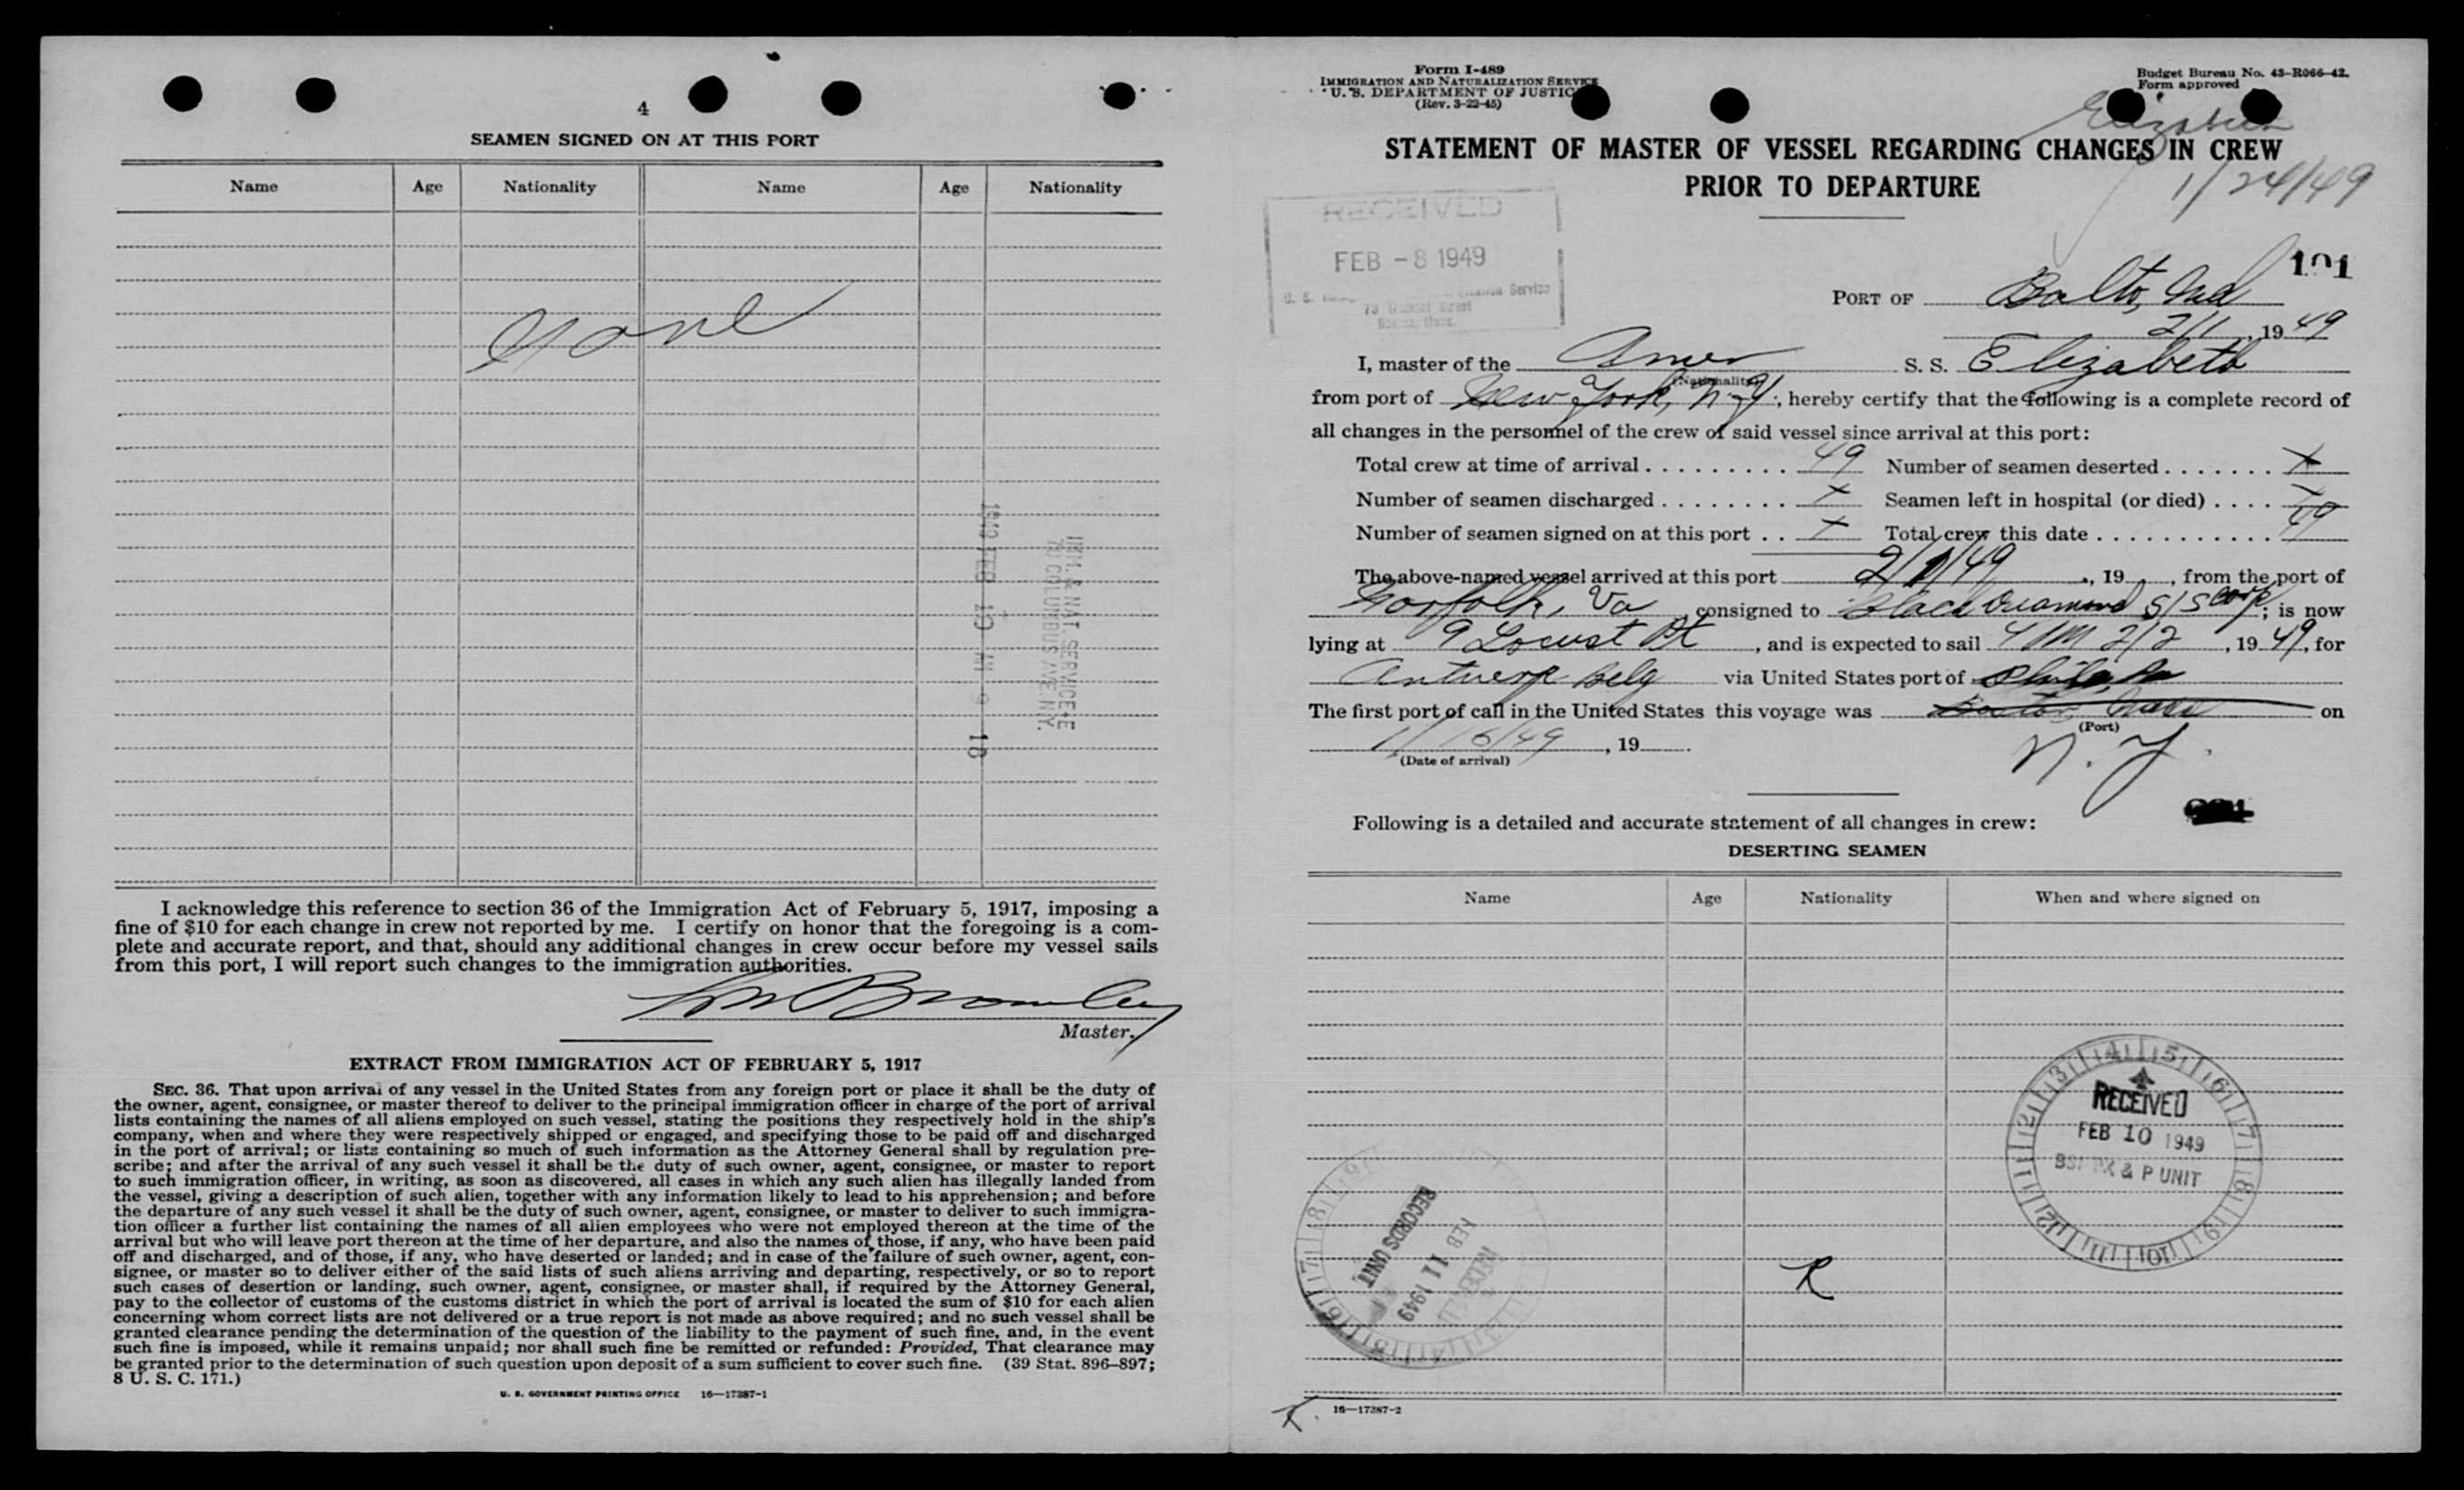 4
SEAMEN SIGNED ON AT THIS PORT
Name Age Nationality Name Age Nationality
None
1949 FEB 10 AM 9 18
IMM. & NAT. SERVICE
70 COLUMBUS AVE. N.Y.
I acknowledge this reference to section 36 of the Immigration Act of February 5, 1917, imposing a
fine of $10 for each change in crew not reported by me. I certify on honor that the foregoing is a com-
plete and accurate report, and that, should any additional changes in crew occur before my vessel sails
from this port, I will report such changes to the immigration authorities.
Bromley
Master.
EXTRACT FROM IMMIGRATION ACT OF FEBRUARY 5, 1917
SEC. 36. That upon arrival of any vessel in the United States from any foreign port or place it shall be the duty of
the owner, agent, consignee, or master thereof to deliver to the principal immigration officer in charge of the port of arrival
lists containing the names of all aliens employed on such vessel, stating the positions they respectively hold in the ship's
company, when and where they were respectively shipped or engaged, and specifying those to be paid off and discharged
in the port of arrival; or lists containing so much of such information as the Attorney General shall by regulation pre-
scribe; and after the arrival of any such vessel it shall be the duty of such owner, agent, consignee, or master to report
to such immigration officer, in writing, as soon as discovered, all cases in which any such alien has illegally landed from
the vessel, giving a description of such alien, together with any information likely to lead to his apprehension; and before
the departure of any such vessel it shall be the duty of such owner, agent, consignee, or master to deliver to such immigra-
tion officer a further list containing the names of all alien employees who were not employed thereon at the time of the
arrival but who will leave port thereon at the time of her departure, and also the names of those, if any, who have been paid
off and discharged, and of those, if any, who have deserted or landed; and in case of the failure of such owner, agent, con-
signee, or master so to deliver either of the said lists of such aliens arriving and departing, respectively, or so to report
such cases of desertion or landing, such owner, agent, consignee, or master shall, if required by the Attorney General,
pay to the collector of customs of the customs district in which the port of arrival is located the sum of $10 for each alien
concerning whom correct lists are not delivered or a true report is not made as above required; and no such vessel shall be
granted clearance pending the determination of the question of the liability to the payment of such fine, and, in the event
such fine is imposed, while it remains unpaid; nor shall such fine be remitted or refunded: Provided, That clearance may
be granted prior to the determination of such question upon deposit of a sum sufficient to cover such fine. (39 Stat. 896–897;
8 U. S. C. 171.)
U. S. GOVERNMENT PRINTING OFFICE 16—17387-1
Form I-489
IMMIGRATION AND NATURALIZATION SERVICE
U. S. DEPARTMENT OF JUSTICE
(Rev. 3-22-45)
Budget Bureau No. 43-R066-42.
Form approved
Elizabeth
1/24/49
STATEMENT OF MASTER OF VESSEL REGARDING CHANGES IN CREW
PRIOR TO DEPARTURE
RECEIVED
FEB - 8 1949
U. S. Service
101
PORT OF Balto, Md
2/1, 19 49
I, master of the Amer S. S. Elizabeth
(Nationality)
from port of New York, N.Y., hereby certify that the following is a complete record of
all changes in the personnel of the crew of said vessel since arrival at this port:
Total crew at time of arrival . . . . . . . . . 49 Number of seamen deserted . . . . . . . X
Number of seamen discharged . . . . . . . . X Seamen left in hospital (or died) . . . . X
Number of seamen signed on at this port . . X Total crew this date . . . . . . . . . . . . 49
The above-named vessel arrived at this port 2/1/49, 19 , from the port of
Norfolk, Va, consigned to Black Diamond S/S Corp; is now
lying at 9 Locust Pt, and is expected to sail 2/2, 19 49, for
Antwerp Belg via United States port of
The first port of call in the United States this voyage was Boston, Mass on
(Port)
N. Y.
1/16/49, 19 .
(Date of arrival)
Following is a detailed and accurate statement of all changes in crew:
DESERTING SEAMEN
Name Age Nationality When and where signed on
RECEIVED
FEB 10 1949
& P UNIT
RECORDS UNIT
FEB 11 1949
RECEIVED
R
16—17387-2